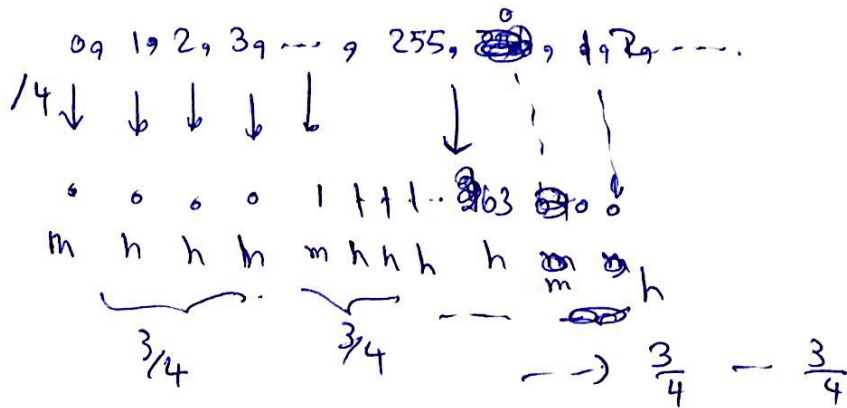 0, 1, 2, 3, ---- , 255, 0, 1, 2, ----.
/4
0 0 0 0 1 1 1 1 .. 63 0 0
m h h h m h h h h m h
3/4 3/4 ---- ---> 3/4 — 3/4